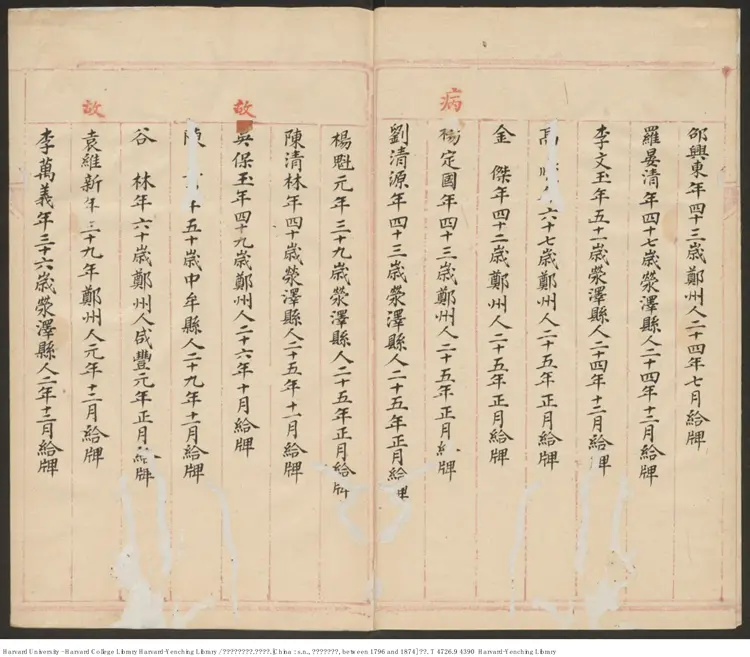 邵興東年四十三歲鄭州人二十四年七月給牌
羅晏清年四十七歲滎澤縣人二十四年十二月給牌
李文玉年五十二歲滎澤縣人二十四年十二月給牌
六十七歲鄭州人二十五年正月給牌
金 傑年四十二歲鄭州人二十五年正月給牌
病
楊定國年四十三歲鄭州人二十五年正月給牌
劉清源年四十三歲滎澤縣人二十五年正月給牌
楊魁元年三十九歲滎澤縣人二十五年正月給牌
陳清林年四十歲滎澤縣人二十五年十一月給牌
故
吳保玉年四十九歲鄭州人二十六年十月給牌
年五十歲中牟縣人二十九年十一月給牌
谷 林年六十歲鄭州人咸豐元年正月給牌
故
袁維新年三十九年鄭州人元年十二月給牌
李萬義年三十六歲滎澤縣人二年十二月給牌
Harvard University - Harvard College Library Harvard-Yenching Library / ????????.????.[China : s.n., ???????, between 1796 and 1874] ??. T 4726.9 4390 Harvard-Yenching Library